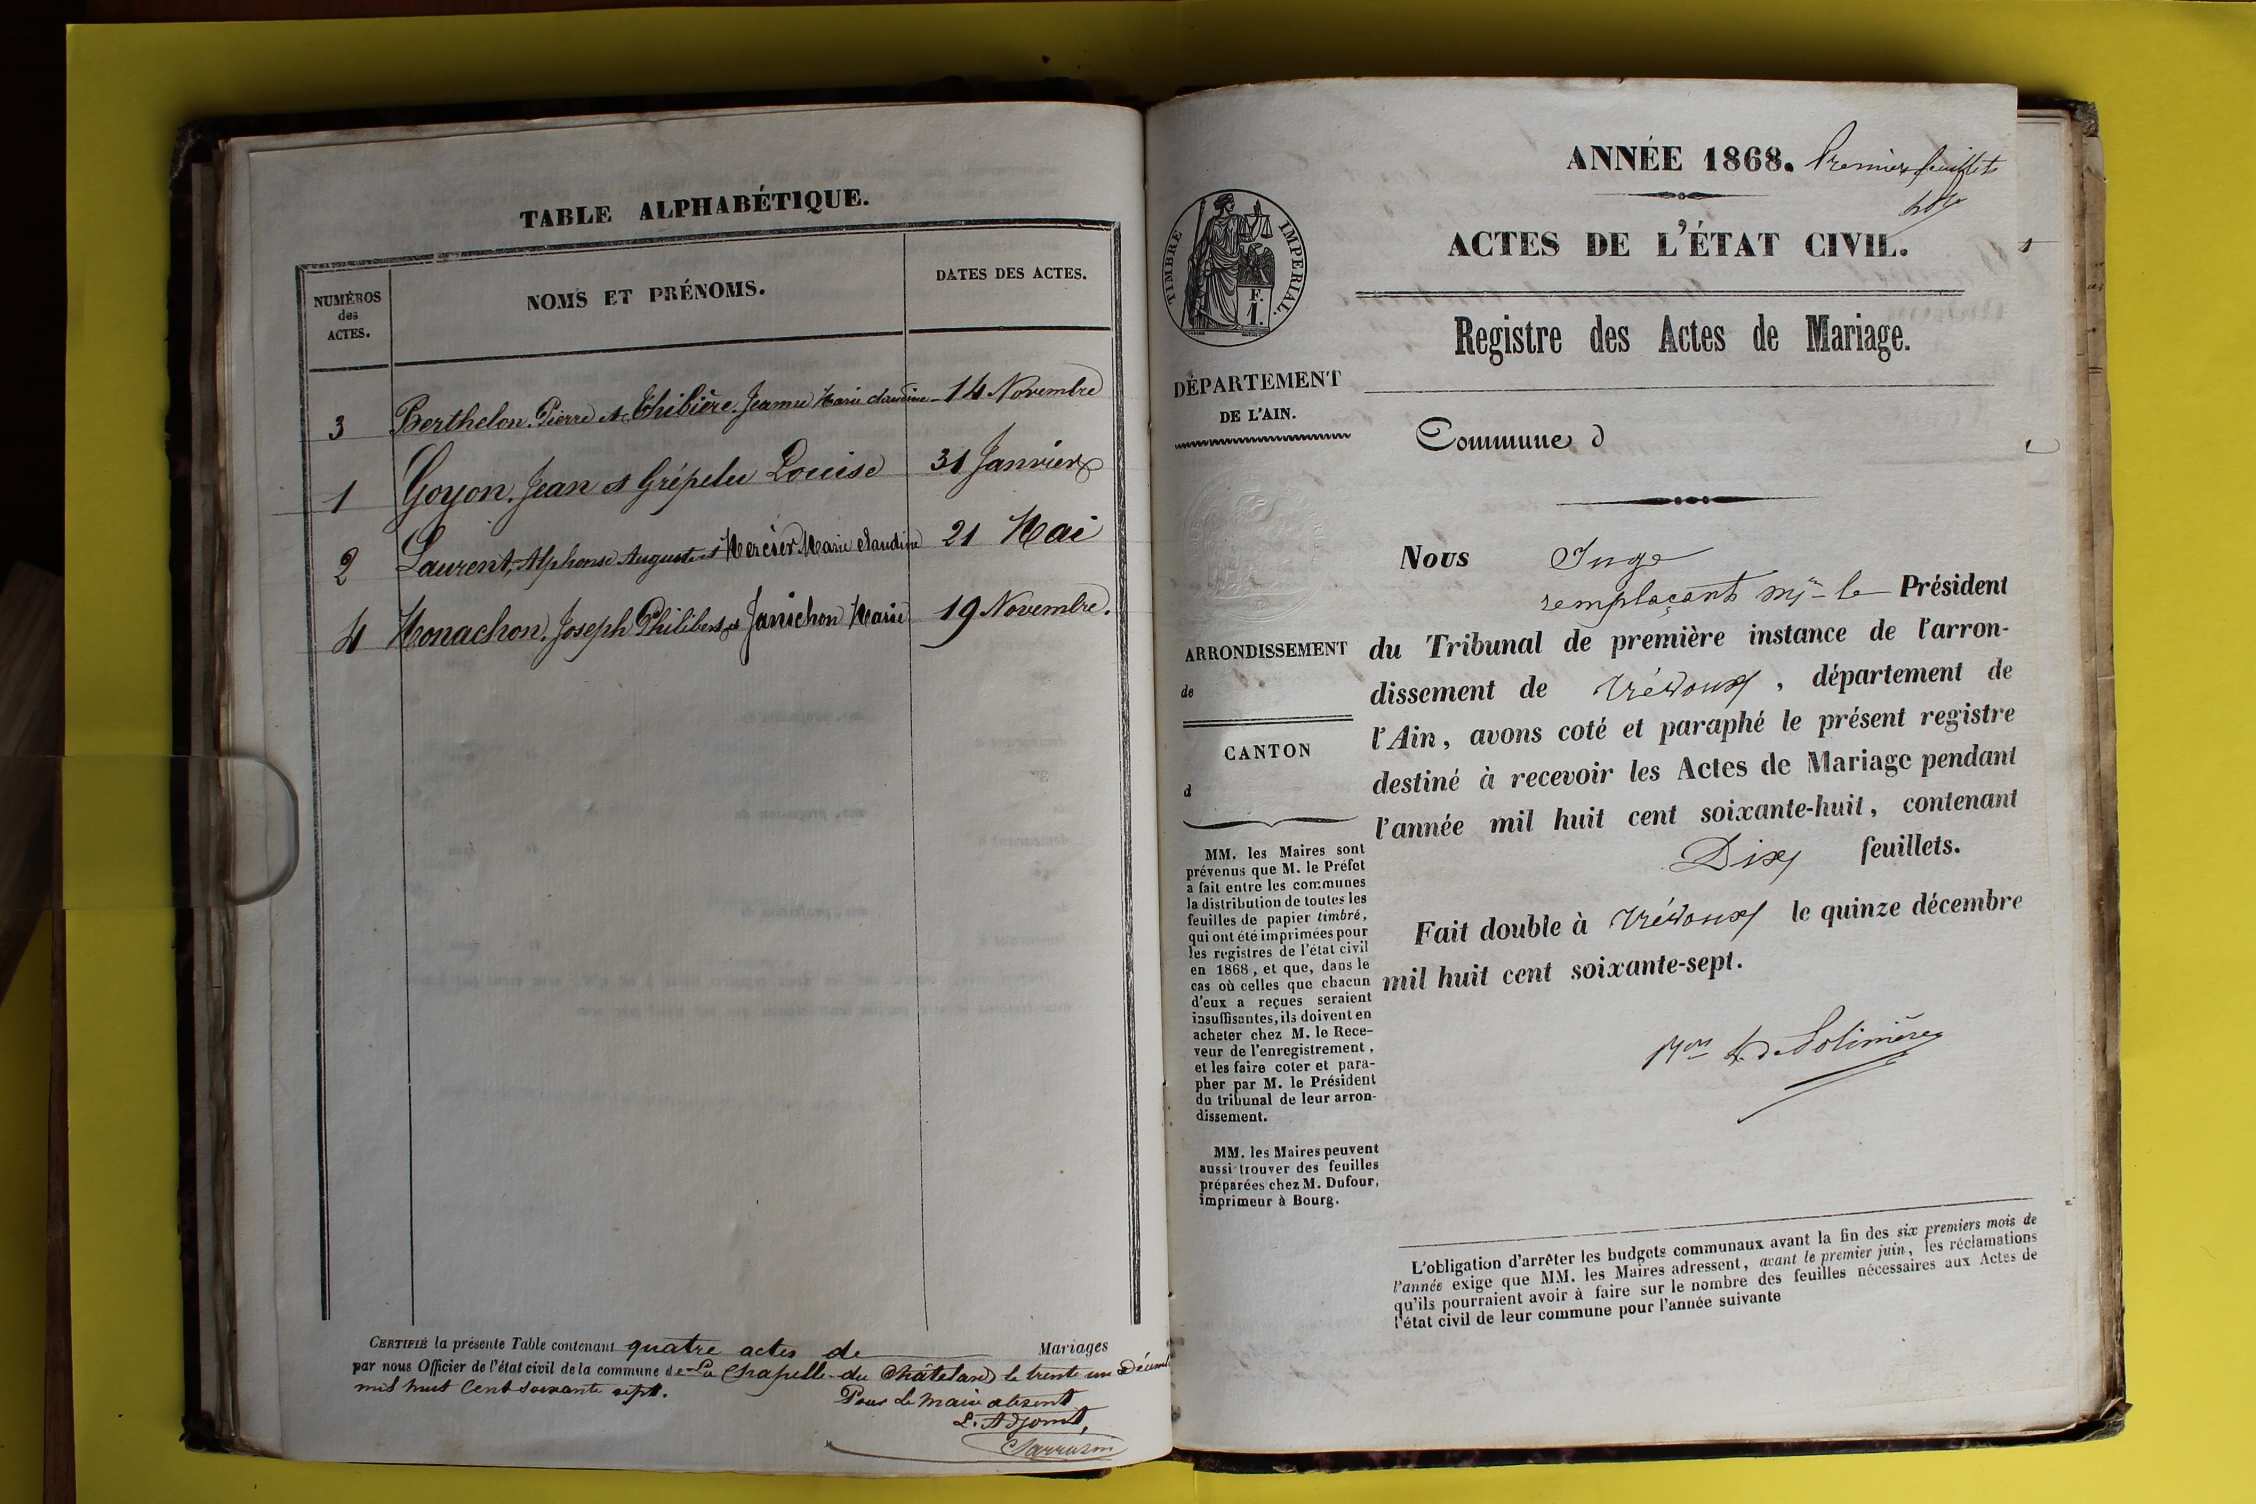 TABLE ALPHABÉTIQUE.
NUMÉROS
des
ACTES.
NOMS ET PRÉNOMS.
DATES DES ACTES.
3 Berthelon. Pierre et Thibière. Jeanne Marie claudine 14 Novembre
1 Goyon. Jean et Grépelu Louise 31 Janvier
2 Laurent, Alphonse Auguste et Mercier Marie claudine 21 Mai
4 Monachon. Joseph Philibert et Janichon Marie 19 Novembre.
CERTIFIÉ la présente Table contenant quatre actes de Mariages
par nous Officier de l'état civil de la commune de La Chapelle-du Châtelard le trente un Décemb
mil huit Cent soixante sept.
Pour Le Maire absent
L'Adjoint,
ANNÉE 1868. Premier feuillet
ACTES DE L'ÉTAT CIVIL.
TIMBRE IMPERIAL.
F.
1.
Registre des Actes de Mariage.
DÉPARTEMENT
DE L'AIN.
Commune d
Nous Juge
remplaçant Mr le Président
du Tribunal de première instance de l'arron-
dissement de Trévoux, département de
l'Ain, avons coté et paraphé le présent registre
destiné à recevoir les Actes de Mariage pendant
l'année mil huit cent soixante-huit, contenant
Dix feuillets.
Fait double à Trévoux le quinze décembre
mil huit cent soixante-sept.
ARRONDISSEMENT
de
CANTON
d
MM. les Maires sont
prévenus que M. le Préfet
a fait entre les communes
la distribution de toutes les
feuilles de papier timbré,
qui ont été imprimées pour
les registres de l'état civil
en 1868, et que, dans le
cas où celles que chacun
d'eux a reçues seraient
insuffisantes, ils doivent en
acheter chez M. le Rece-
veur de l'enregistrement,
et les faire coter et para-
pher par M. le Président
du tribunal de leur arron-
dissement.
MM. les Maires peuvent
aussi trouver des feuilles
préparées chez M. Dufour,
imprimeur à Bourg.
L'obligation d'arrêter les budgets communaux avant la fin des six premiers mois de
l'année exige que MM. les Maires adressent, avant le premier juin, les réclamations
qu'ils pourraient avoir à faire sur le nombre des feuilles nécessaires aux Actes de
l'état civil de leur commune pour l'année suivante